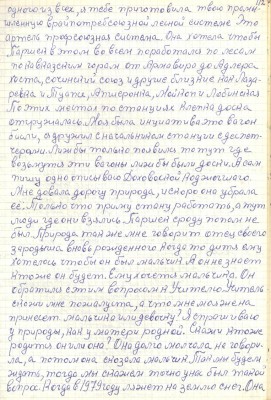 112
одного из всех, я тебе приготовила твою
в райпотребсоюзной лесной системе Это
артель профсоюзная система. Она хотела чтобы
Паршек в этом во всем поработал по лесам
по кавказским горам от Армавира до Адлера
союз и другие близкие как Лаза-
ревка и Туапс, Апшеронка, Майкоп и Лабинская
По этих местах по станциях я лесна доска
отгружалась. Моя была инициатива это вагон
были, я дружил с начальником станции с диспет-
черами. Лишь бы только появились то тут где
возьмутся эти вагоны лишь бы были доски. А сам
пишу одно описываю Духовной Надзвездного
Мне давала дорогу природа, и скоро она убрала
ее. Только что приму стану работать, а тут
люди где они взялись. Паршек сроду попом не
был. Природа так же мне говорит отец своего
зародыша вновь рожденного когда то дитя ему
хотелось чтобы он был мальчик. А он не знает
кто же он будет. Ему хочется мальчика. Он
обратился с этим вопросом к Учителю. Учитель
скажи мне пожалуйста, а что мне моя жена
принесет мальчика или девочку? Я строго взаю
у природы, как у матери родной. Скажи кто же
родится он или она? Она долго молчала не говори-
ла, а потом она сказала мальчик. Так мы будем
ждать, тогда мы скажем точно уна был такой
вопрос. Когда в 1979 году ляжет на землю снег. Она